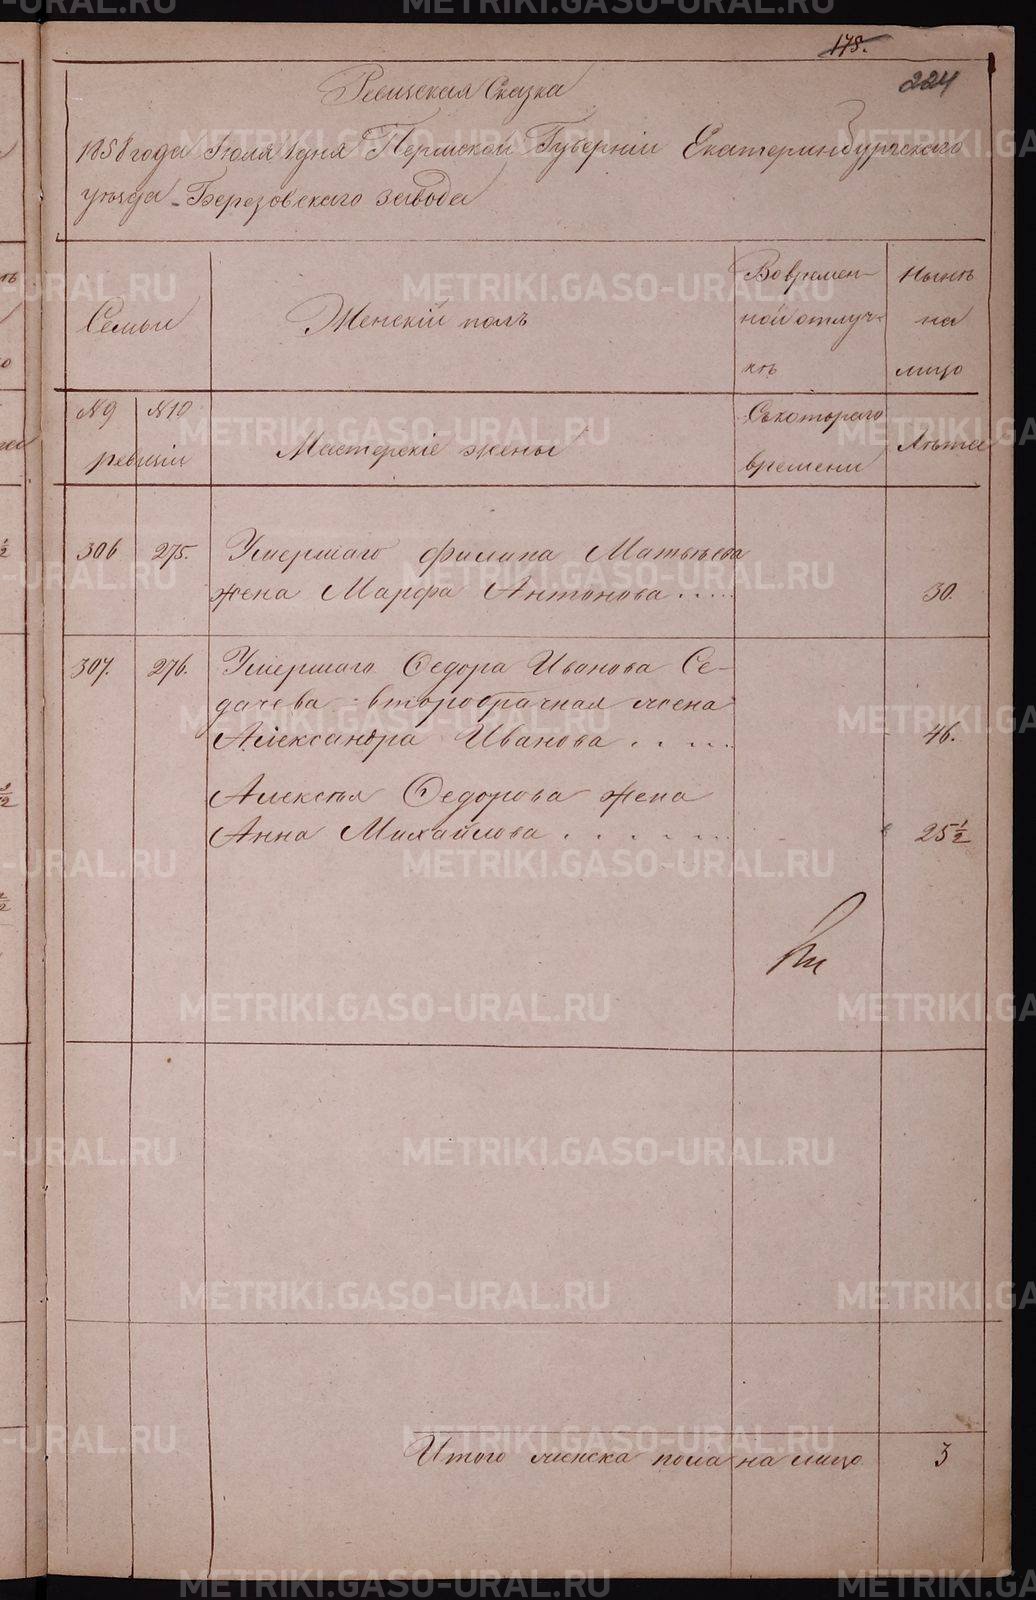 178.
224
Ревижская Сказка
1858 года Июля 1 дня Пермской Губерніи Екатеринбургскаго
уѣзда Березовскаго завода
Семьи
Женскій полъ
Во времен-
ной отлуч-
кѣ
Нынѣ
на
лицо
№ 9 № 10
ревизіи
Мастерскіе жены
Съ котораго
времени
Лѣта
306 275. Умершаго Филипа Матвѣева
жена Марфа Антонова . . . . . 30.
307. 276. Умершаго Федора Иванова Се-
дачева второбрачная жена
Александра Иванова . . . . . 46.
Алексѣя Федорова жена
Анна Михайлова . . . . . . . 25 1/2
Итого женска пола на лицо 3
METRIKI.GASO-URAL.RU